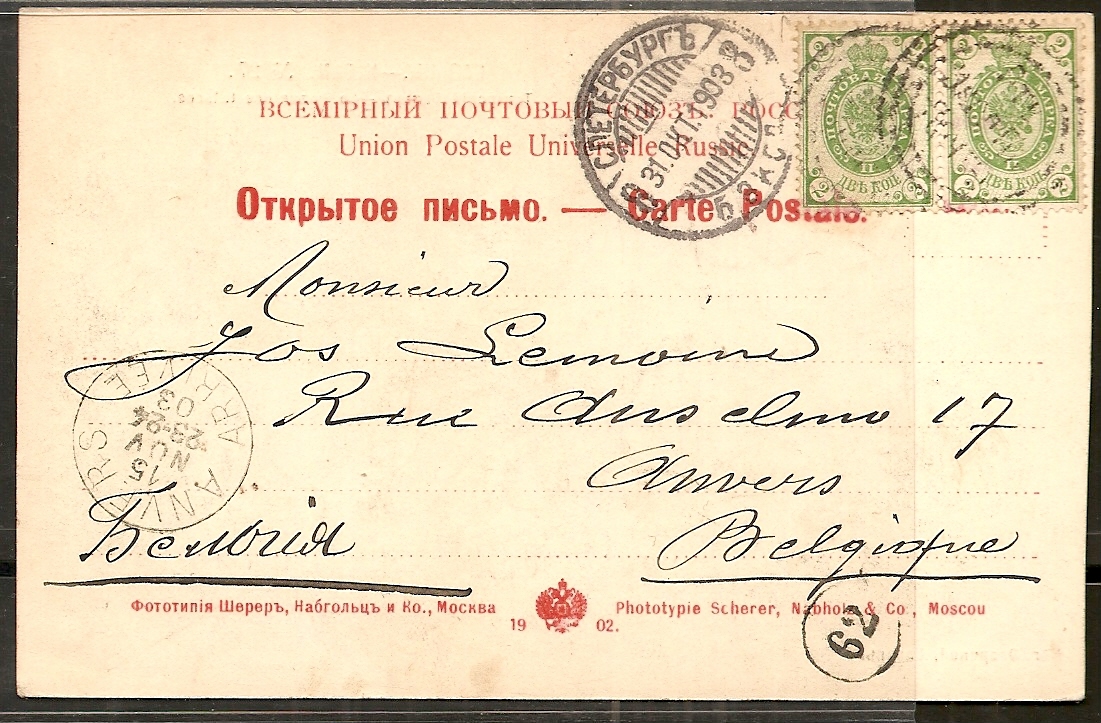 ВСЕМІРНЫЙ ПОЧТОВЫЙ СОЮЗЪ. РОСС
Union Postale Universelle Russie
Открытое письмо. — Carte Postale.
С.ПЕТЕРБУРГЪ
31.ОКТ.1903
8
2 2
ПОЧТОВАЯ МАРКА
ДВѢ КОП.
2 2
2 2
ПОЧТОВАЯ МАРКА
ДВѢ КОП.
2 2
Monsieur
Jos Lemoine
Rue Anselmo 17
Anvers
Бельгія
Belgique
ANVERS ARRIVÉE
15
NOV
23-24
03
Фототипія Шереръ, Набгольцъ и Ко., Москва
Phototypie Scherer, Nabholz & Co., Moscou
1902.
62